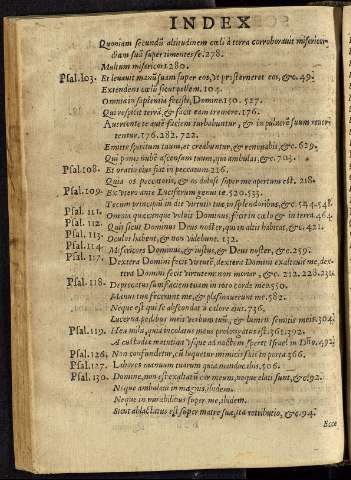 INDEX
Quoniam secundũ altitudinem cœli à terra corroboravit misericor-
diam suã super timentes se. 278.
Multum misericors. 280.
Psal. 103. Et levavi manũ suam super eos, ut prosterneret eos, &c. 49.
Extendens cœlũ sicut pellem. 104.
Omnia in sapientia fecisti, Domine. 150. 527.
Qui respicit terrã, & facit eam tremere. 176.
Avertente te autẽ faciem turbabuntur, & in pulverẽ suum rever-
tentur. 176. 282. 722.
Emitte spiritum tuum, et creabuntur, & renovabis, &c. 629.
Qui ponis nubẽ ascensum tuum, qui ambulas, &c. 703.
Psal. 108. Et oratio eius fiat in peccatum 216.
Quia os peccatoris, & os dolosi super me apertum est. 218.
Psal. 109. Ex utero ante Luciferum genui te. 520. 533.
Tecum principiũ in die virtutis tuæ, in splendoribus, &c. 524. 548.
Psal. 111. Omnia quæcunque voluit Dominus, fecit in cœlo & in terra. 464.
Psal. 112. Quis sicut Dominus Deus noster, qui in altis habitat, &c. 421.
Psal. 113. Oculos habent, & non videbunt. 132.
Psal. 114. Misericors Dominus, & iustus, & Deus noster, &c. 259.
Psal. 117. Dextera Domini fecit virtutẽ, dextera Domini exaltavit me, dex-
tera Domini fecit virtutem non moriar, &c. 212. 228.
Psal. 118. Deprecatus sum faciem tuam in toto corde meo. 550.
Manus tuæ fecerunt me, & plasmaverunt me. 582.
Neque est qui se abscondat à calore eius. 736.
Lucerna pedibus meis verbum tuũ, & lumen semitis meis. 304.
Psal. 119. Heu mihi, quia incolatus meus prolongatus est. 361. 392.
A custodia matutina usque ad noctẽ speret Israel in Dño. 492.
Psal. 126. Non confundetur, cũ loquetur inimicis suis in porta. 366.
Psal. 127. Labores manuum tuarum quia manducabis. 506.
Psal. 130. Domine, non est exaltatũ cor meum, neque elati sunt, &c. 92.
Neque ambulavi in magnis, ibidem.
Neque in mirabilibus super me, ibidem.
Sicut ablactatus est super matre sua, ita retributio, &c. 94.
Ecce